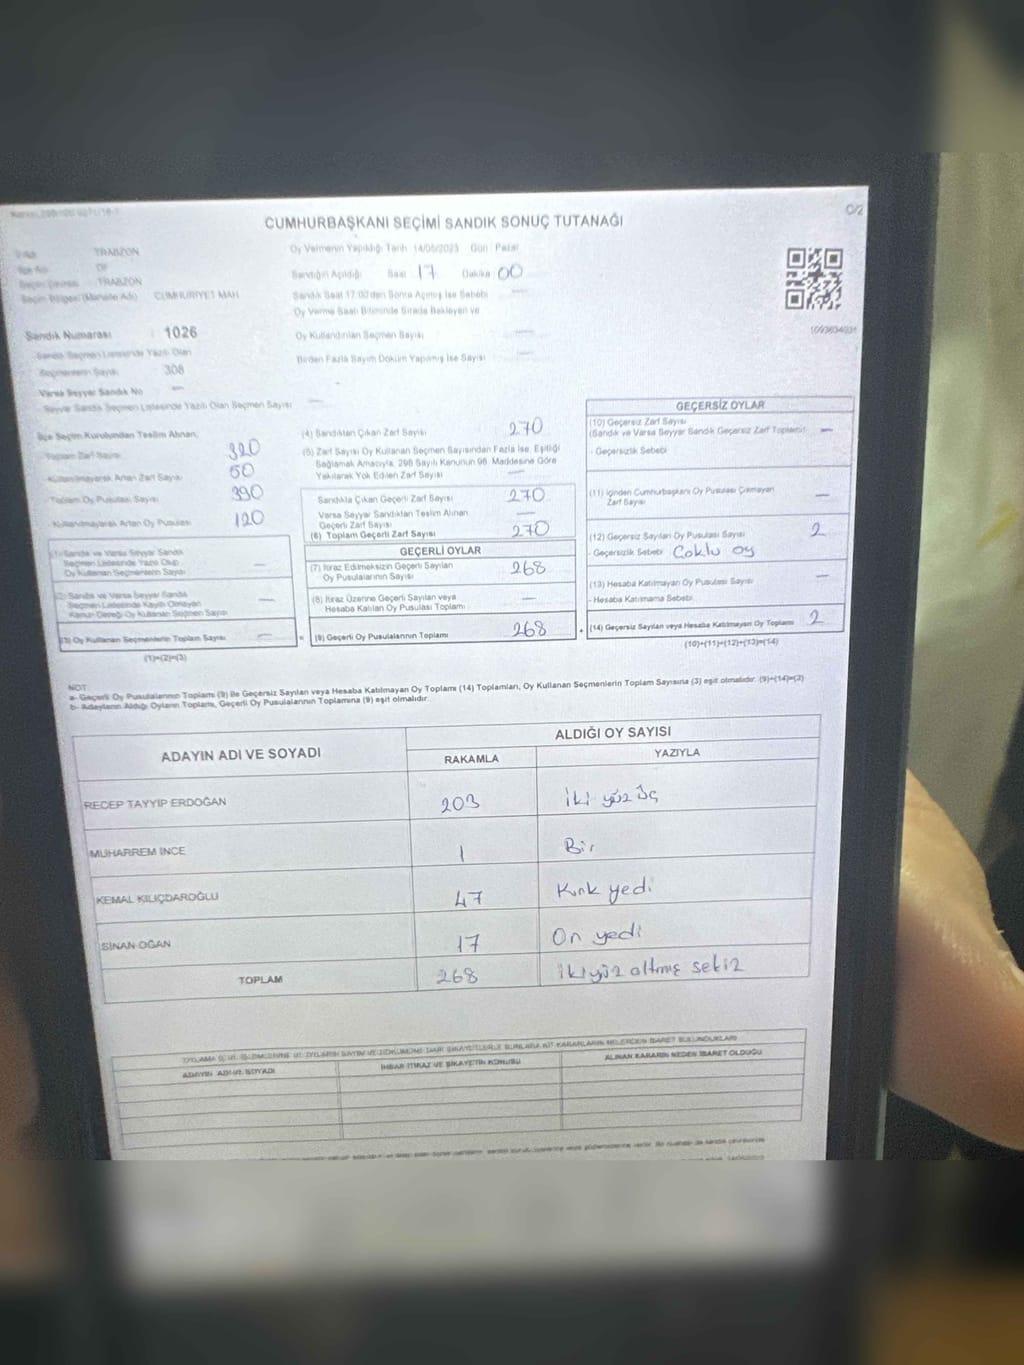 C/2
CUMHURBAŞKANI SEÇİMİ SANDIK SONUÇ TUTANAĞI
TRABZON
OF
TRABZON
CUMHURİYET MAH.
Sandık Numarası 1026
Sandık Seçmen Listesinde Yazılı Olan
Seçmenlerin Sayısı 308
Varsa Seyyar Sandık No —
Seyyar Sandık Seçmen Listesinde Yazılı Olan Seçmen Sayısı —
Oy Vermenin Yapıldığı Tarih 14/05/2023 Gün : Pazar
Sandığın Açıldığı Saat 17 Dakika 00
Sandık Saat 17.00'den Sonra Açılmış İse Sebebi —
Oy Verme Saati Bitiminde Sırada Bekleyen ve
Oy Kullandırılan Seçmen Sayısı —
Birden Fazla Sayım Döküm Yapılmış İse Sayısı —
1093634931
İlçe Seçim Kurulundan Teslim Alınan,
Toplam Zarf Sayısı 320
Kullanılmayarak Artan Zarf Sayısı 50
Toplam Oy Pusulası Sayısı 390
Kullanılmayarak Artan Oy Pusulası 120
(1) Sandık ve Varsa Seyyar Sandık
Seçmen Listesinde Yazılı Olup
Oy Kullanan Seçmenlerin Sayısı —
(2) Sandık ve Varsa Seyyar Sandık
Seçmen Listesinde Kayıtlı Olmayan
Kanun Gereği Oy Kullanan Seçmen Sayısı —
(3) Oy Kullanan Seçmenlerin Toplam Sayısı — =
(1)+(2)=(3)
(4) Sandıktan Çıkan Zarf Sayısı 270
(5) Zarf Sayısı Oy Kullanan Seçmen Sayısından Fazla İse, Eşitliği
Sağlamak Amacıyla, 298 Sayılı Kanunun 98. Maddesine Göre
Yakılarak Yok Edilen Zarf Sayısı —
Sandıkta Çıkan Geçerli Zarf Sayısı 270
Varsa Seyyar Sandıktan Teslim Alınan
Geçerli Zarf Sayısı —
(6) Toplam Geçerli Zarf Sayısı 270
GEÇERLİ OYLAR
(7) İtiraz Edilmeksizin Geçerli Sayılan
Oy Pusulalarının Sayısı 268
(8) İtiraz Üzerine Geçerli Sayılan veya
Hesaba Katılan Oy Pusulası Toplamı —
(9) Geçerli Oy Pusulalarının Toplamı 268 +
GEÇERSİZ OYLAR
(10) Geçersiz Zarf Sayısı
(Sandık ve Varsa Seyyar Sandık Geçersiz Zarf Toplamı) —
- Geçersizlik Sebebi
(11) İçinden Cumhurbaşkanı Oy Pusulası Çıkmayan
Zarf Sayısı —
(12) Geçersiz Sayılan Oy Pusulası Sayısı 2
- Geçersizlik Sebebi Çoklu oy
(13) Hesaba Katılmayan Oy Pusulası Sayısı —
- Hesaba Katılmama Sebebi
(14) Geçersiz Sayılan veya Hesaba Katılmayan Oy Toplamı 2
(10)+(11)+(12)+(13)=(14)
NOT:
a- Geçerli Oy Pusulalarının Toplamı (9) ile Geçersiz Sayılan veya Hesaba Katılmayan Oy Toplamı (14) Toplamları, Oy Kullanan Seçmenlerin Toplam Sayısına (3) eşit olmalıdır. (9)+(14)=(3)
b- Adayların Aldığı Oyların Toplamı, Geçerli Oy Pusulalarının Toplamına (9) eşit olmalıdır.
ADAYIN ADI VE SOYADI
ALDIĞI OY SAYISI
RAKAMLA YAZIYLA
RECEP TAYYİP ERDOĞAN 203 iki yüz üç
MUHARREM İNCE 1 Bir
KEMAL KILIÇDAROĞLU 47 Kırk yedi
SİNAN OĞAN 17 On yedi
TOPLAM 268 ikiyüz altmış sekiz
ADAYIN ADI VE SOYADI
İHBAR İTİRAZ VE ŞİKAYETİN KONUSU
ALINAN KARARIN NEDEN İBARET OLDUĞU